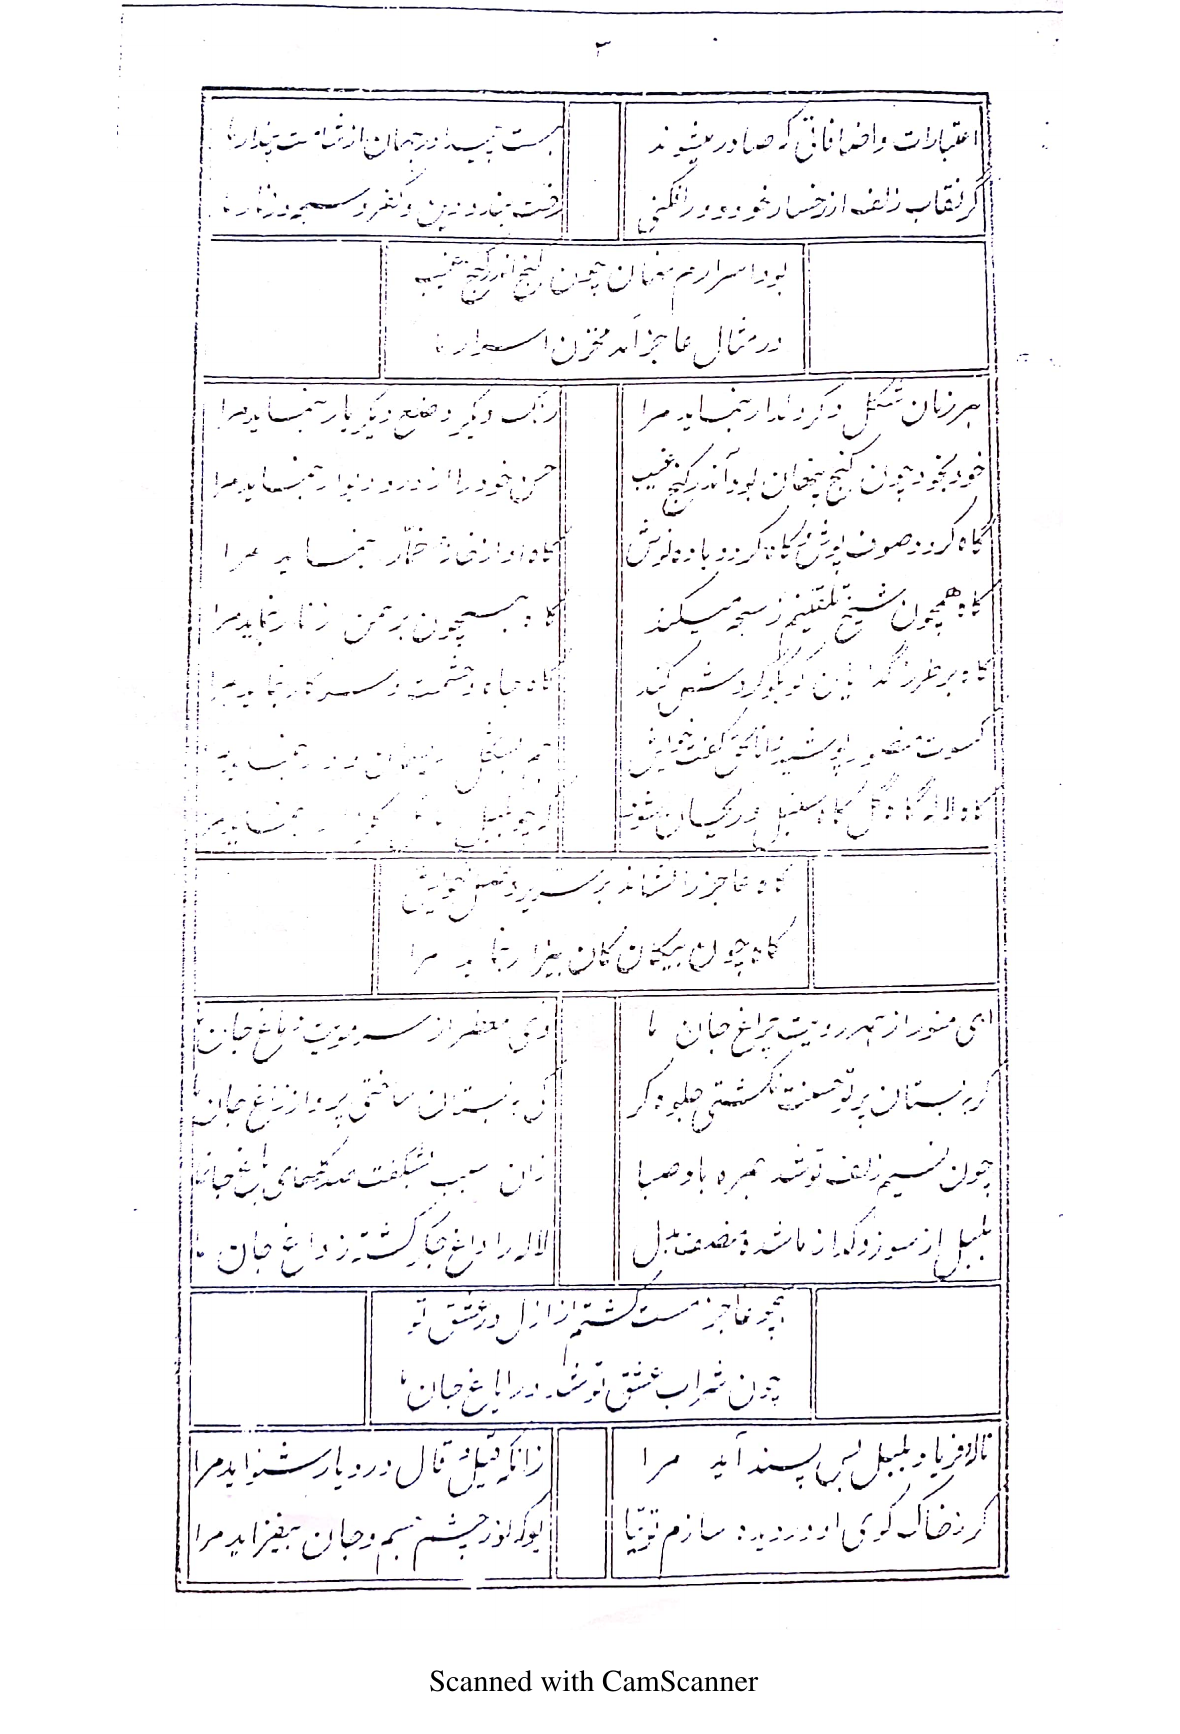 ۳
اعتبارات و اضافاتی که صادر میشوند
هست پیدا در جهان از شامت پندار ما
گر نقاب زلف از رخسار خود دور افکنی
رفت بند و دین و کفر و سبحه و زنار ما
بود اسرارم نهان چون گنج اندر کنج غیب
در مثال عاجز آمد مخزن اسرار ما
هر زمان شکل دگر دلدار بنماید مرا
رنگ دیگر وضع دیگر یار بنماید مرا
خود بخود چون گنج پنهان بود اندر کنج غیب
حسن خود را از در و دیوار بنماید مرا
گاه گردد صوف پوش و گاه گردد باده نوش
گاه او از خانهٔ خمار بنماید مرا
گاه همچون شیخ تلقینم ز سبحه میکند
گاه همچون برهمن زنار بنماید مرا
گاه بر طرز گدایان کو بکو گردش کند
گاه جاه و حشمت و سرکار بنماید مرا
کسوت منصور پوشید انا الحق گفت خویش
هم بشکل ریسمان و دار بنماید مرا
گاه لاله گاه گل گاه سنبل و ریحان شود
بنماید مرا
گاه عاجز را نشاند بر سریر وصل خویش
گاه چون بیگانگان بیزار بنماید مرا
ای منور از مهر رویت چراغ جان ما
وی معطر از سر مویت دماغ جان ما
گر به بستان پرتو حسنت نگشتی جلوه گر
کی به بستان ساختی پرواز زاغ جان ما
چون نسیم زلف تو شد همره باد صبا
زان سبب بشگفت صد گلهای باغ جان ما
بلبل از سوز و گداز ما شده مضطر بدل
لاله را داغ جگر گشته ز داغ جان ما
همچو عاجز مست گشتم از ازل در عشق تو
چون شراب عشق تو شد در ایاغ جان ما
ناله و فریاد بلبل بس پسند آید مرا
زانکه قیل و قال درد یار شنواید مرا
گر ز خاک کوی او در دیده سازم توتیا
بو که نور چشم جسم و جان بیفزاید مرا
Scanned with CamScanner